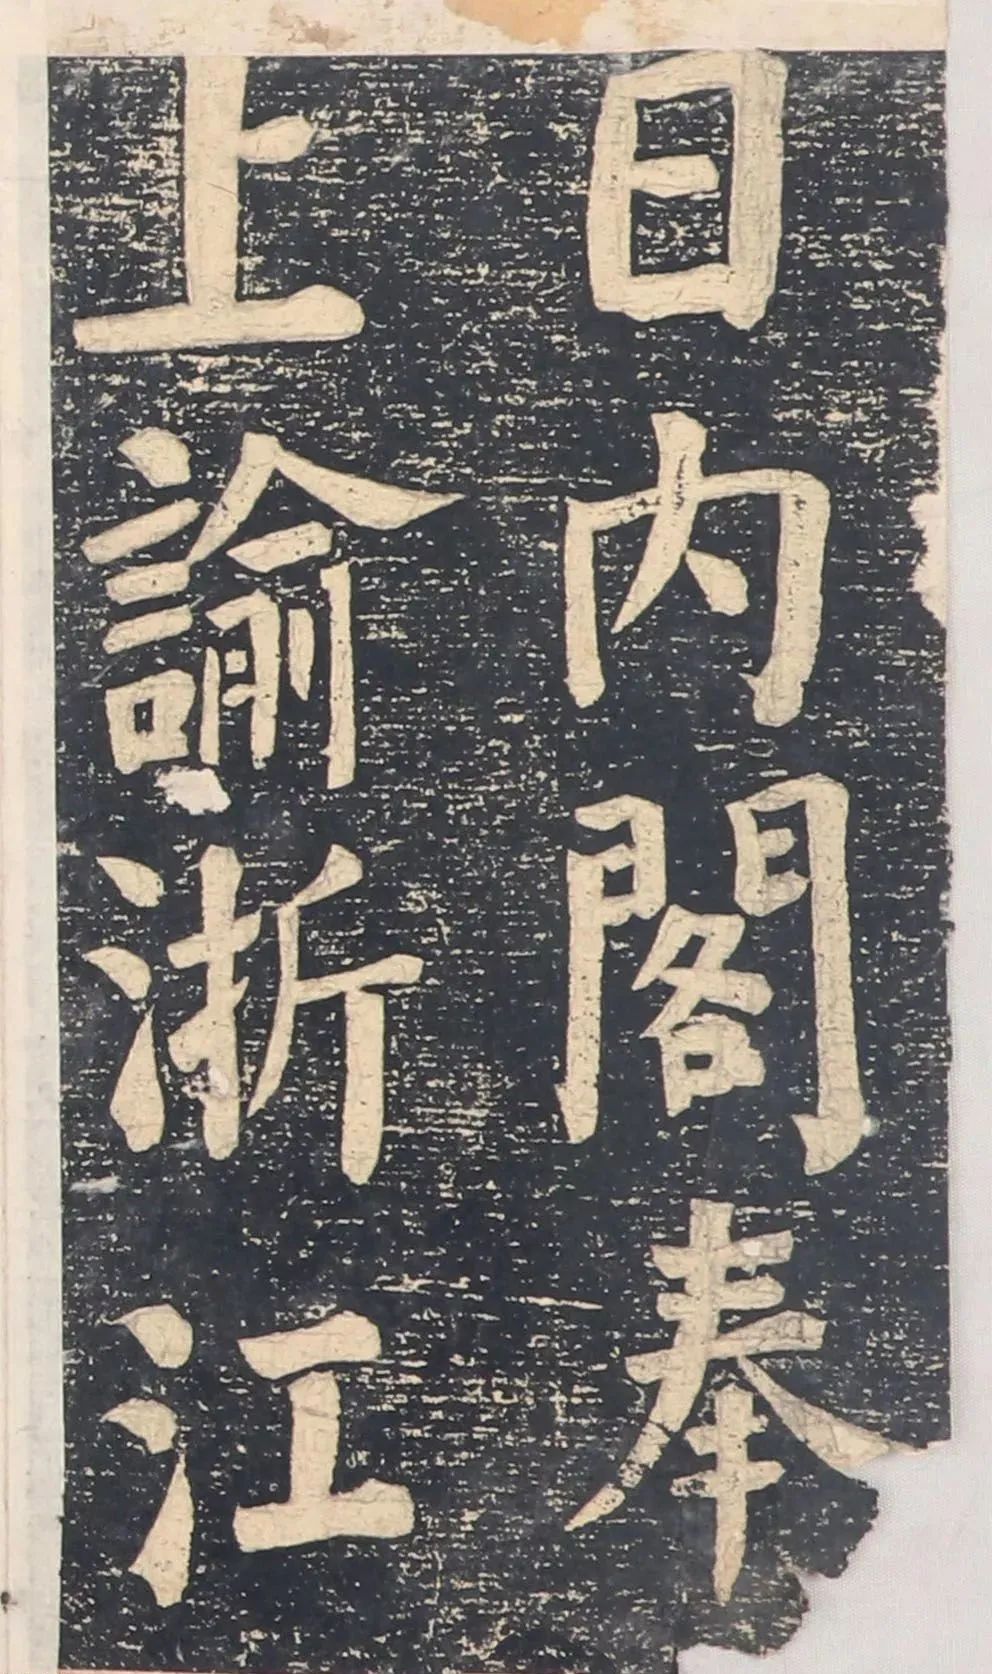 日内閣奉
上諭浙江